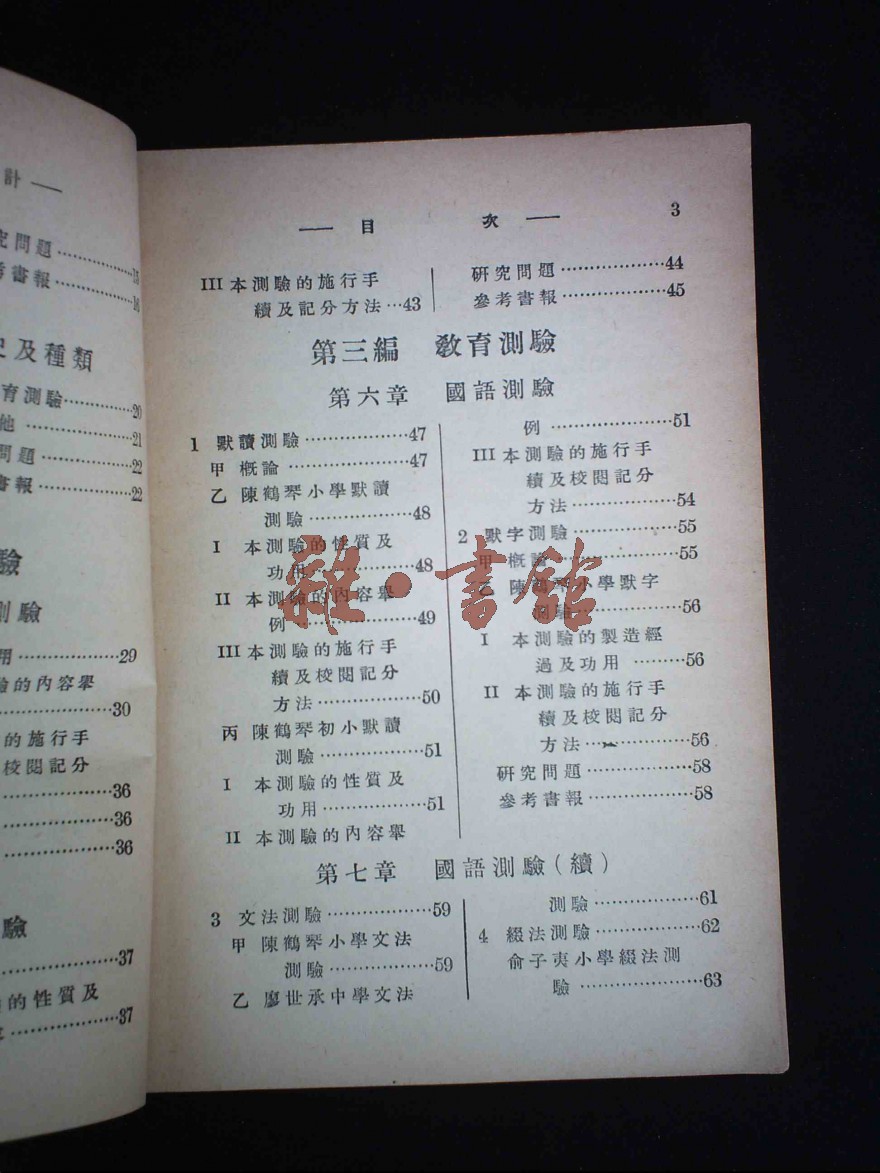 計 —
究問題……………15
考書報……………16
史及種類
育測驗…………20
他……………21
問題……………22
書報……………22
驗
測驗
用……………29
驗的內容舉
……………30
的施行手
校閱記分
……………36
……………36
……………36
驗
……………37
的性質及
……………37
— 目 次 — 3
III 本測驗的施行手
續及記分方法…43
研究問題………………44
參考書報………………45
第三編 教育測驗
第六章 國語測驗
1 默讀測驗………………47
甲 概論…………………47
乙 陳鶴琴小學默讀
測驗………………48
I 本測驗的性質及
功用………………48
II 本測驗的內容舉
例…………………49
III 本測驗的施行手
續及校閱記分
方法………………50
丙 陳鶴琴初小默讀
測驗………………51
I 本測驗的性質及
功用………………51
II 本測驗的內容舉
例…………………51
III 本測驗的施行手
續及校閱記分
方法………………54
2 默字測驗………………55
甲 概論…………………55
乙 陳鶴琴小學默字
測驗………………56
I 本測驗的製造經
過及功用………56
II 本測驗的施行手
續及校閱記分
方法………………56
研究問題………………58
參考書報………………58
第七章 國語測驗(續)
3 文法測驗………………59
甲 陳鶴琴小學文法
測驗………………59
乙 廖世承中學文法
測驗………………61
4 綴法測驗………………62
俞子夷小學綴法測
驗…………………63
雜·書館